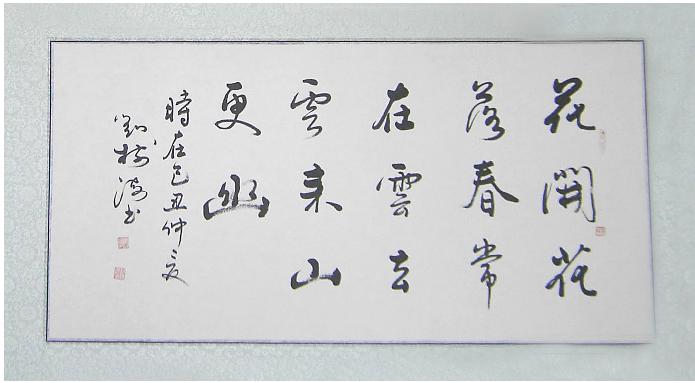 花開花
落春常
在雲去
雲来山
更幽
時在己丑仲夏
劉樹波书